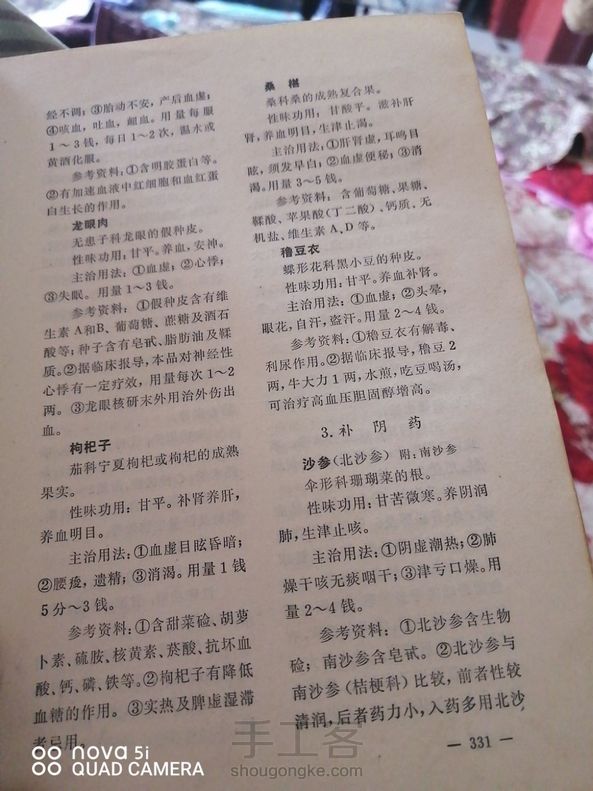 经不调；③胎动不安，产后血虚；
④咳血，吐血，衄血。用量每服
1～3钱，每日1～2次，温水或
黄酒化服。
参考资料：①含明胶蛋白等。
②有加速血液中红细胞和血红蛋
白生长的作用。
龙眼肉
无患子科龙眼的假种皮。
性味功用：甘平。养血，安神。
主治用法：①血虚；②心悸；
③失眠。用量1～3钱。
参考资料：①假种皮含有维
生素A和B、葡萄糖、蔗糖及酒石
酸等；种子含有皂甙、脂肪油及鞣
质。②据临床报导，本品对神经性
心悸有一定疗效，用量每次1～2
两。③龙眼核研末外用治外伤出
血。
枸杞子
茄科宁夏枸杞或枸杞的成熟
果实。
性味功用：甘平。补肾养肝，
养血明目。
主治用法：①血虚目眩昏暗；
②腰痠，遗精；③消渴。用量1钱
5分～3钱。
参考资料：①含甜菜硷、胡萝
卜素、硫胺、核黄素、菸酸、抗坏血
酸、钙、磷、铁等。②枸杞子有降低
血糖的作用。③实热及脾虚湿滞
者忌用。
桑椹
桑科桑的成熟复合果。
性味功用：甘酸平。滋补肝
肾，养血明目，生津止渴。
主治用法：①肝肾虚，耳鸣目
眩，须发早白；②血虚便秘；③消
渴。用量3～5钱。
参考资料：含葡萄糖、果糖、
鞣酸、苹果酸（丁二酸）、钙质、无
机盐、维生素A、D等。
穞豆衣
蝶形花科黑小豆的种皮。
性味功用：甘平。养血补肾。
主治用法：①血虚；②头晕，
眼花，自汗，盗汗。用量2～4钱。
参考资料：①穞豆衣有解毒、
利尿作用。②据临床报导，穞豆2
两，牛大力1两，水煎，吃豆喝汤，
可治疗高血压胆固醇增高。
3.补阴药
沙参（北沙参） 附：南沙参
伞形科珊瑚菜的根。
性味功用：甘苦微寒。养阴润
肺，生津止咳。
主治用法：①阴虚潮热；②肺
燥干咳无痰咽干；③津亏口燥。用
量2～4钱。
参考资料：①北沙参含生物
硷；南沙参含皂甙。②北沙参与
南沙参（桔梗科）比较，前者性较
清润，后者药力小，入药多用北沙
— 331 —
nova 5i
QUAD CAMERA
手工客
shougongke.com